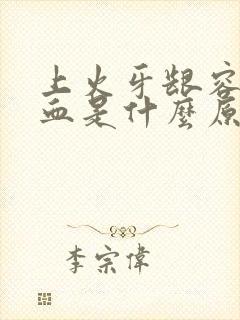 上火牙龈容
血是什麼原
李宗偉